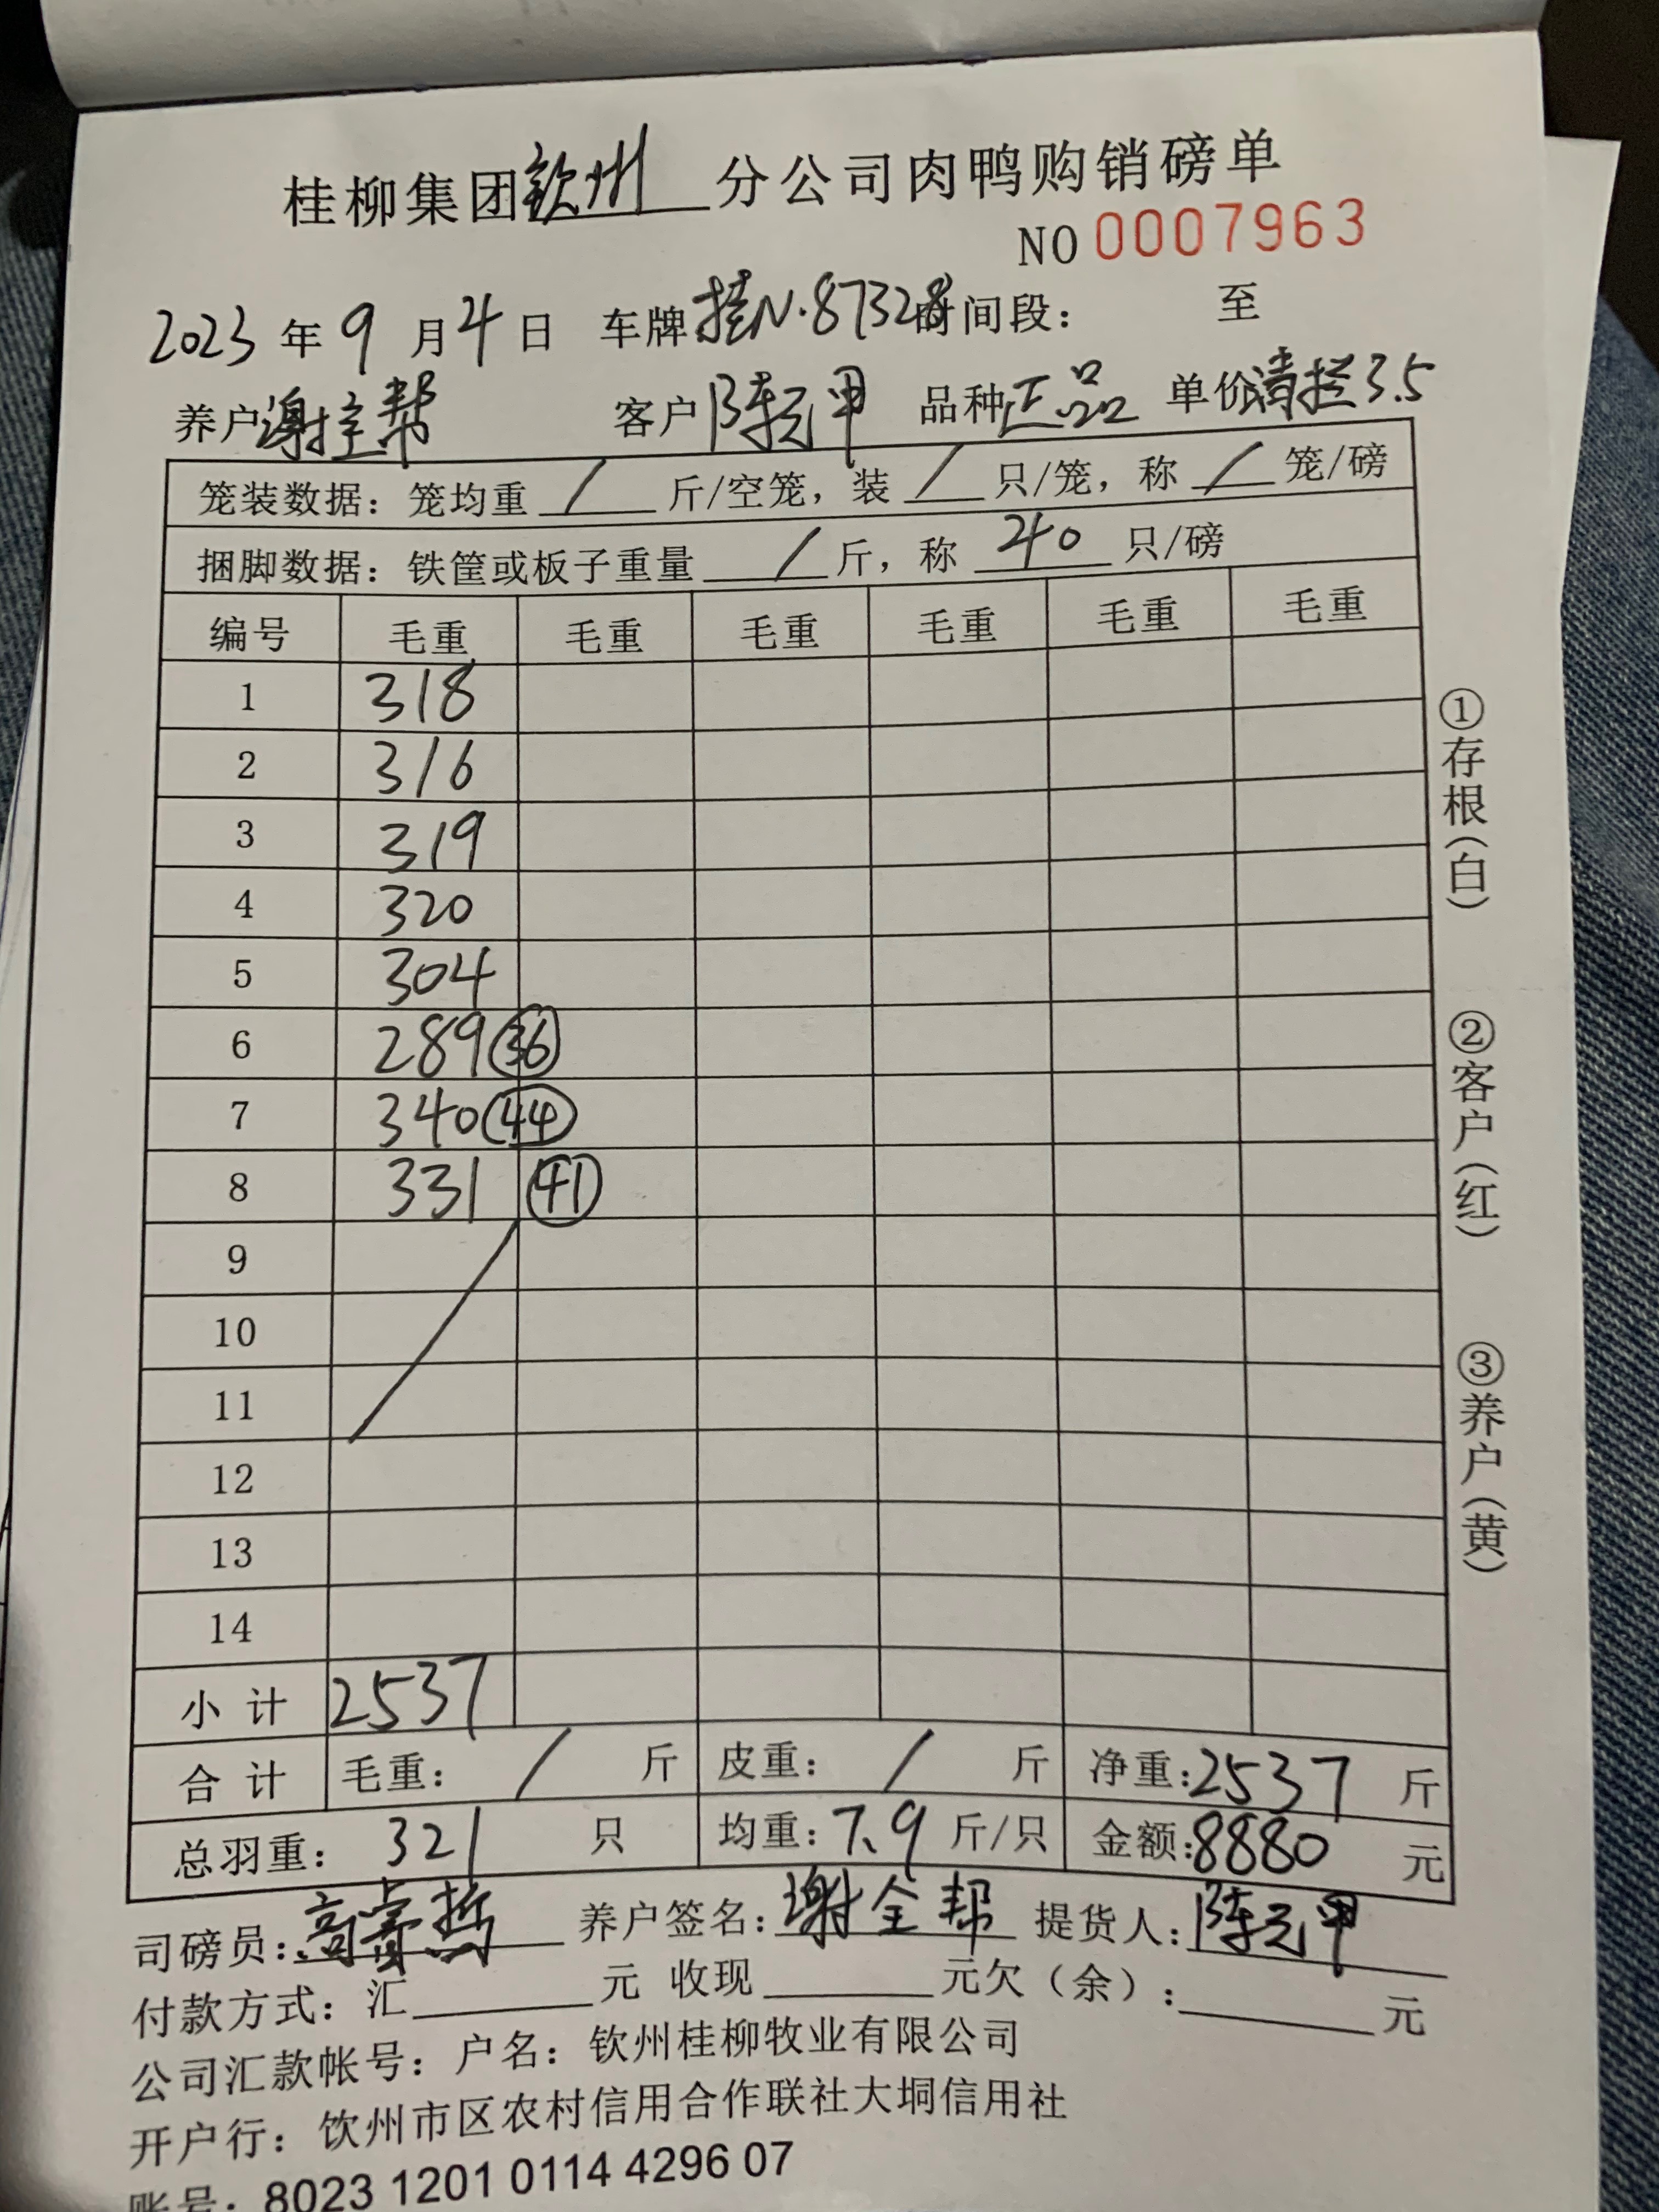 桂柳集团钦州分公司肉鸭购销磅单
NO 0007963
2023 年 9 月 4 日 车牌 桂N·87328 时间段： 至
养户 谢全帮 客户 陈元甲 品种 正品 单价 清拦3.5
笼装数据：笼均重 / 斤/空笼，装 / 只/笼，称 / 笼/磅
捆脚数据：铁筐或板子重量 / 斤，称 240 只/磅
编号 毛重 毛重 毛重 毛重 毛重 毛重
1 318
2 316
3 319
4 320
5 304
6 289 36
7 340 44
8 331 41
9
10
11
12
13
14
小 计 2537
合 计 毛重： / 斤 皮重： / 斤 净重：2537 斤
总羽重： 321 只 均重：7.9 斤/只 金额：8880 元
司磅员： 养户签名：谢全帮 提货人：陈元甲
付款方式：汇 元 收现 元欠（余）： 元
公司汇款帐号：户名：钦州桂柳牧业有限公司
开户行：钦州市区农村信用合作联社大垌信用社
账号：8023 1201 0114 4296 07
①存根（白）
②客户（红）
③养户（黄）